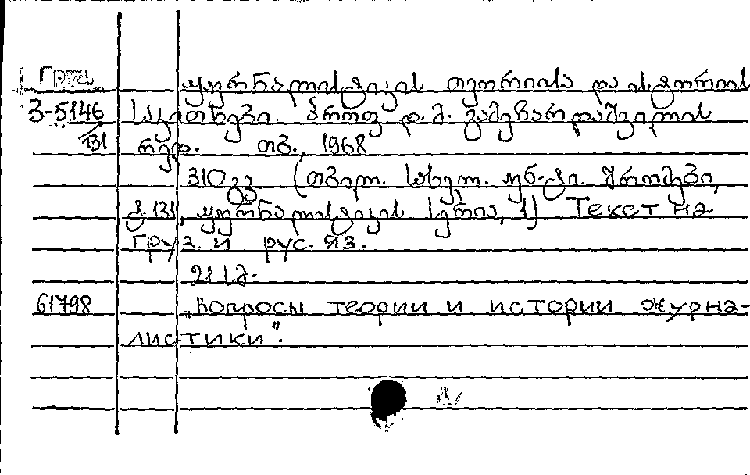 Груз.
ჟურნალისტიკის თეორიისა და ისტორიის
З-5146
131
საკითხები. პროფ. დ. მ. გამეზარდაშვილის
რედ. თბ., 1968
310 გვ (თბილ. სახელ. უნ-ტი. შრომები,
ტ. 131, ჟურნალისტიკის სერია, 1) Текст на
груз. и рус. яз.
61798
„Вопросы теории и истории журна-
листики".